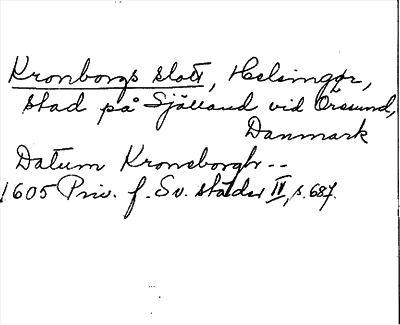 Kronborgs slott, Helsingør,
stad på Själland vid Öresund,
Danmark
Datum Kroneborgh --
1605 Priv. f. Sv. städer IV, s. 687.